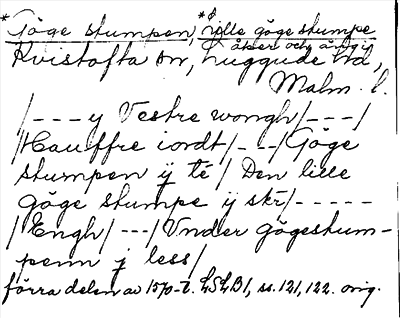 *Göge stumpen, *lille göge stumpe
åker och äng i
Kvistofta sn, Luggude hd,
Malm. l.
/---y Vestre wongh/---/
/Hauffre iordt/---/Göge
stumpen ÿ té/Den lille
göge stumpe ÿ skr/-----
/Engh/---/Vnder gögestum-
penn j less/
förra delen av 1570-t. LSLB1, ss. 121, 122. orig.